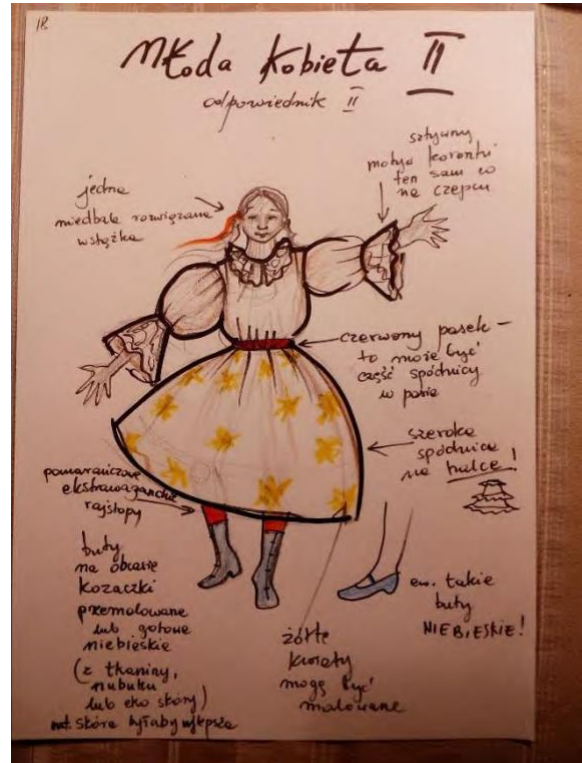 18
Młoda Kobieta II
odpowiednik II
sztywny
motyw koronki
ten sam co
na czepcu
jedna
niedbale rozwiązana
wstążka
czerwony pasek –
to może być
część spódnicy
w pasie
szeroka
spódnica
na halce!
pomarańczowe
ekstrawaganckie
rajstopy
buty
na obcasie
kozaczki
przemalowane
lub gotowe
niebieskie
(z tkaniny,
nubuku
lub eko skóry)
nat. skóra byłaby najlepsza
żółte
kwiaty
mogą być
malowane
ew. takie
buty
NIEBIESKIE!